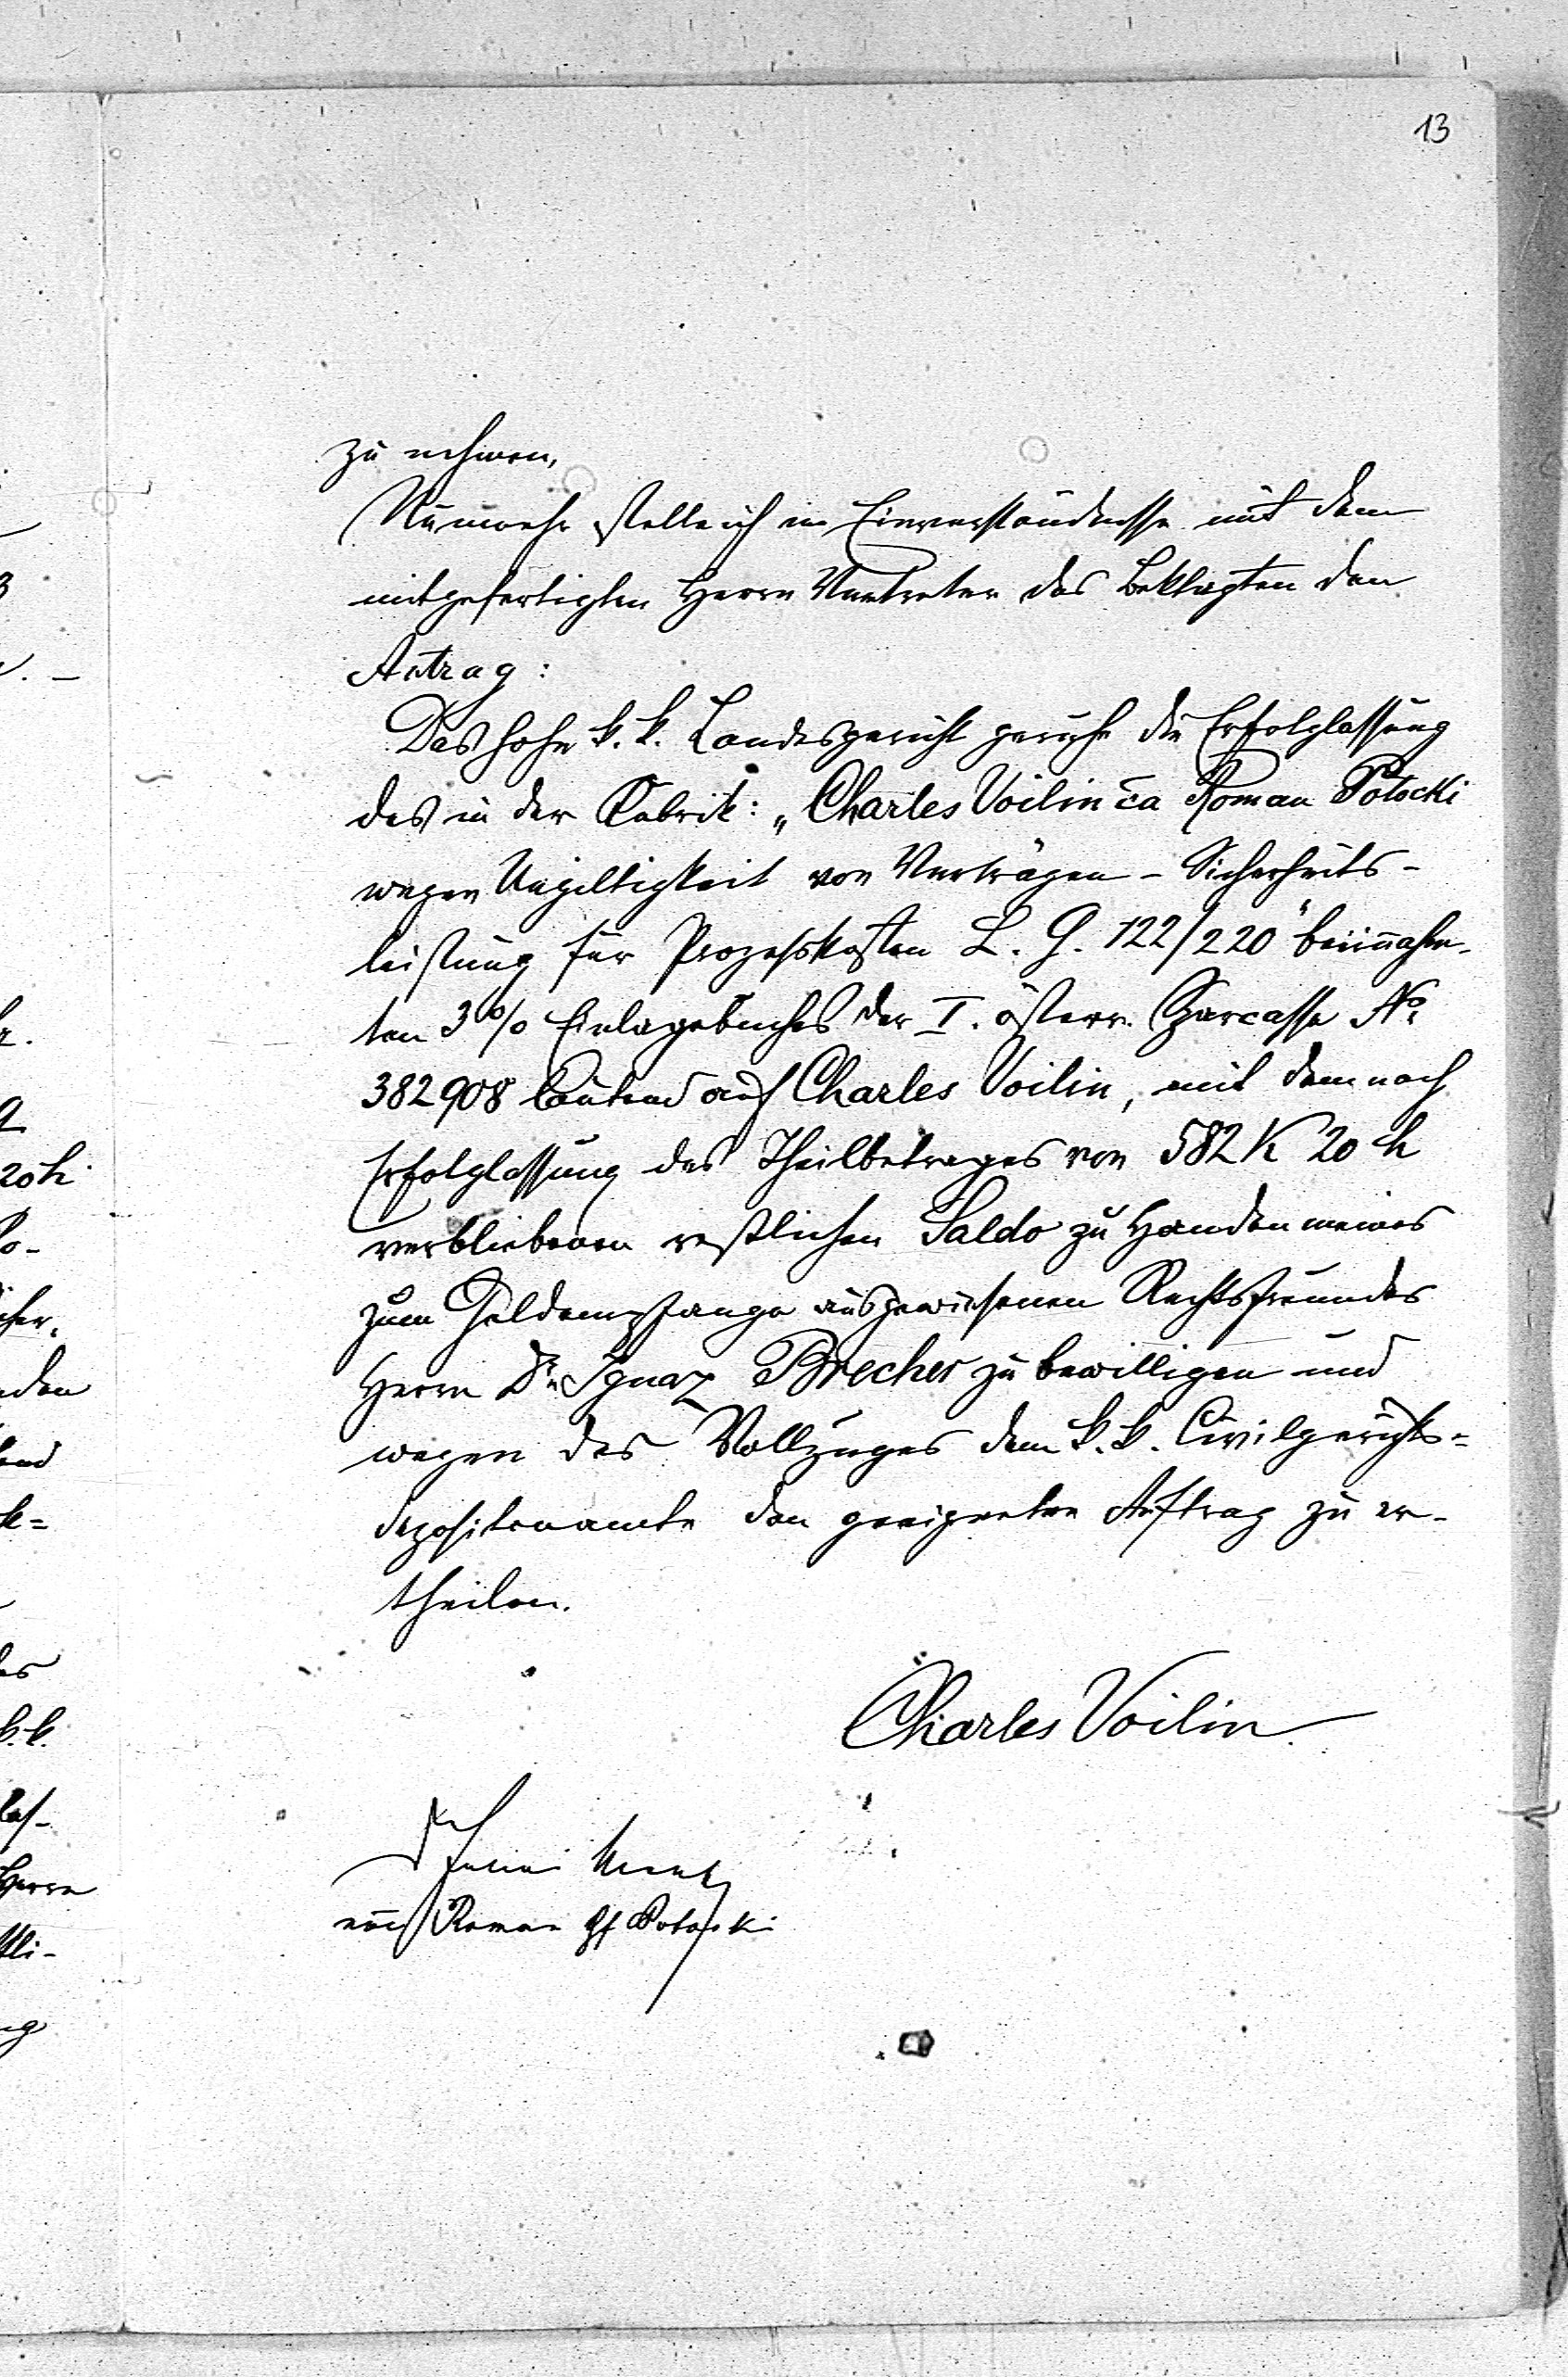 13
zu nehmen,
Nunmehr stelle ich im Einverständnisse mit dem
mitgefertigten Herrn Vertreter des Beklagten den
Antrag:
Das hohe k. k. Landesgericht geruhe die Erfolglassung
des in der Rubrik: „Charles Voilin ca Roman Potocki
wegen Ungiltigkeit von Verträgen - Sicherheits-
leistung für Prozeßkosten L. G. 122/220" beinnahm-
ten 3% Einlagebuches der I. österr. Sparcasse No
382908 lautend auf Charles Voilin, mit dem nach
Erfolglassung des Theilbetrages von 582 K 20 h
verbliebenen restlichen Saldo zu Handen meines
zum Geldempfange ausgewiesenen Rechtsfreundes
Herrn Dr. Ignaz Brecher zu bewilligen und
wegen des Vollzuges dem k. k. Civilgerichts=
depositenamte den geeigneten Auftrag zu er-
theilen.
Charles Voilin
Roman Gf Potocki